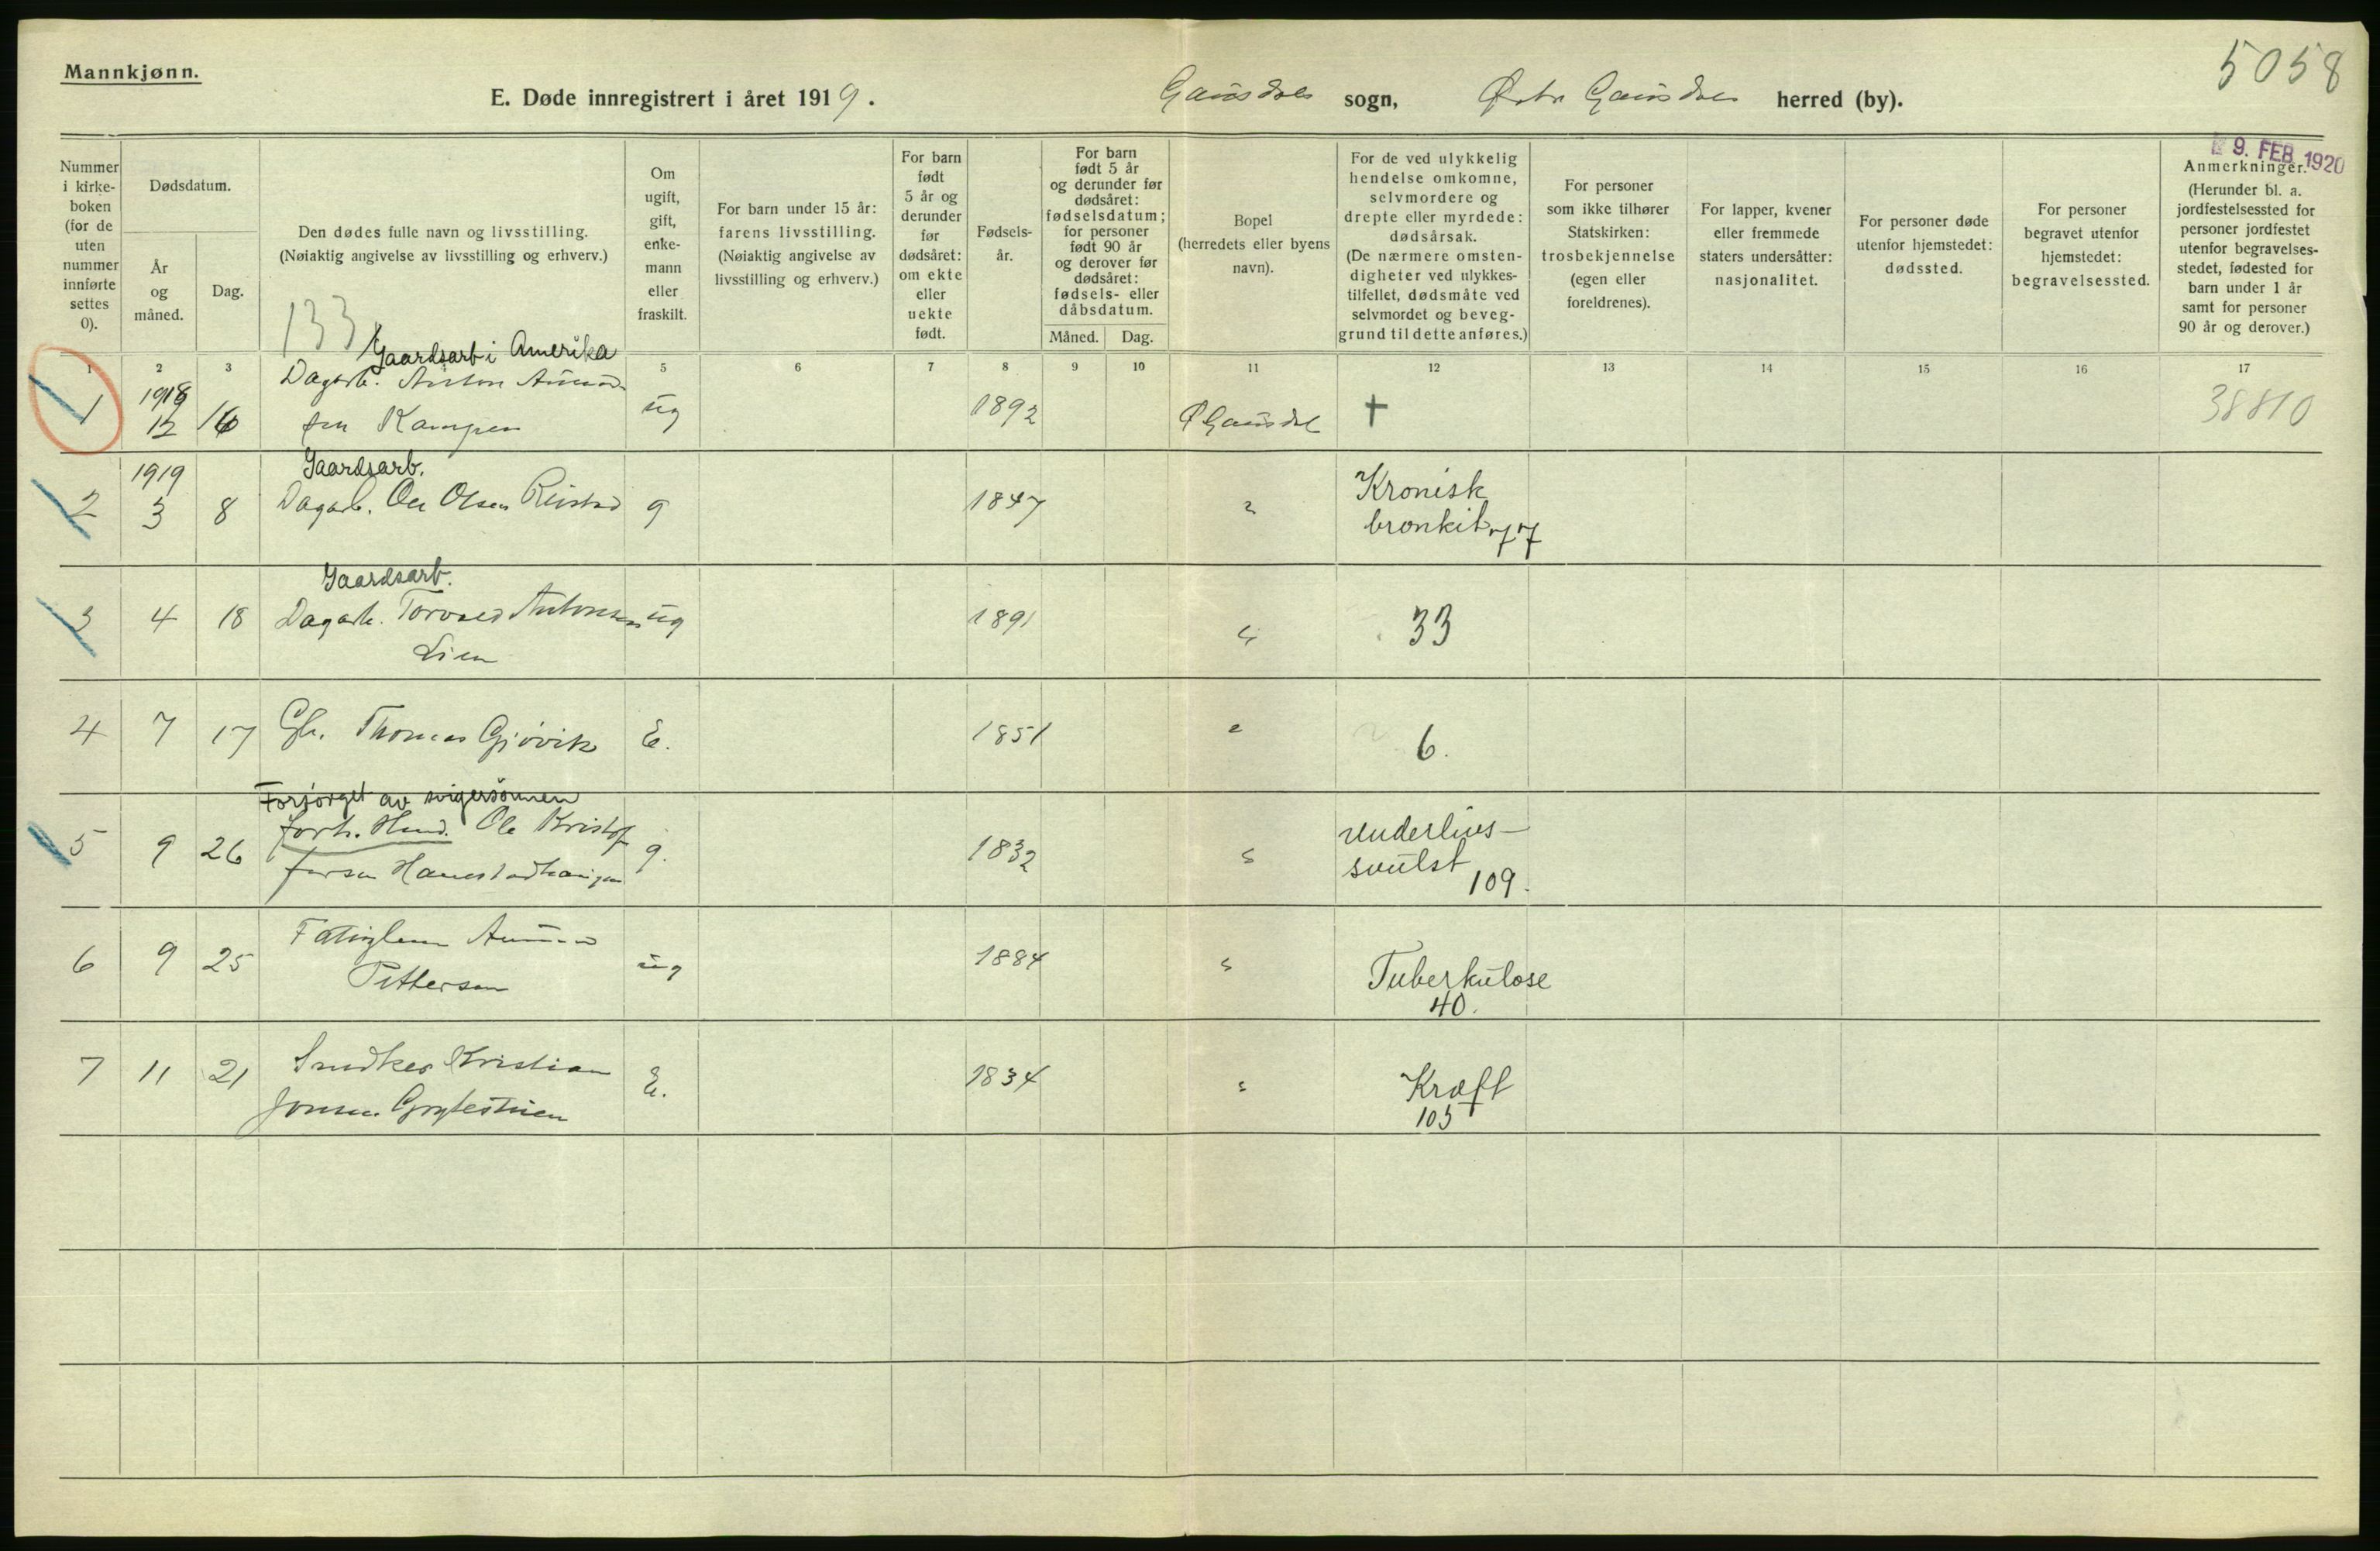 Mannkjønn.
5058
E. Døde innregistrert i året 1919. Gausdal sogn, Østr Gausdal herred (by).
9. FEB. 1920
Nummer i kirke- boken (for de uten nummer innførte settes 0).
Dødsdatum.
År og måned.
Dag.
Den dødes fulle navn og livsstilling.
(Nøiaktig angivelse av livsstilling og erhverv.)
133
Om ugift, gift, enke- mann eller fraskilt.
For barn under 15 år: farens livsstilling.
(Nøiaktig angivelse av livsstilling og erhverv.)
For barn født 5 år og derunder før dødsåret: om ekte eller uekte født.
Fødsels- år.
For barn født 5 år og derunder før dødsåret: fødselsdatum; for personer født 90 år og derover før dødsåret: fødsels- eller dåbsdatum.
Måned. Dag.
Bopel (herredets eller byens navn).
For de ved ulykkelig hendelse omkomne, selvmordere og drepte eller myrdede: dødsårsak.
(De nærmere omsten- digheter ved ulykkes- tilfellet, dødsmåte ved selvmordet og beveg- grund til dette anføres.)
For personer som ikke tilhører Statskirken: trosbekjennelse (egen eller foreldrenes).
For lapper, kvener eller fremmede staters undersåtter: nasjonalitet.
For personer døde utenfor hjemstedet: dødssted.
For personer begravet utenfor hjemstedet: begravelsessted.
Anmerkninger.
(Herunder bl. a. jordfestelsessted for personer jordfestet utenfor begravelses- stedet, fødested for barn under 1 år samt for personer 90 år og derover.)
1 2 3 5 6 7 8 9 10 11 12 13 14 15 16 17
Gaardsarb i Amerika
1918 Dagarb. Anton Amund-
1 12 16 sen Kampen ug 1892 Ø Gausdal † 38810
1919 Gaardsarb. Kronisk
2 3 8 Dagarb. Ole Olsen g 1847 bronkit 77
Gaardsarb.
3 4 18 Dagarb. Torvald Antonsen ug 1891 33
Lien
4 7 17 Gbr. Thomas Gjøvik E. 1851 6.
Forsørget av svigersønnen
5 9 26 forh. Husmd. Ole Kristof g. 1832 Underlivs-
fersen svulst 109.
6 9 25 Fattiglem ug 1884 Tuberkulose
Pettersen 40.
7 11 21 Snedker Kristian E. 1834 Kræft
Jonsen 105